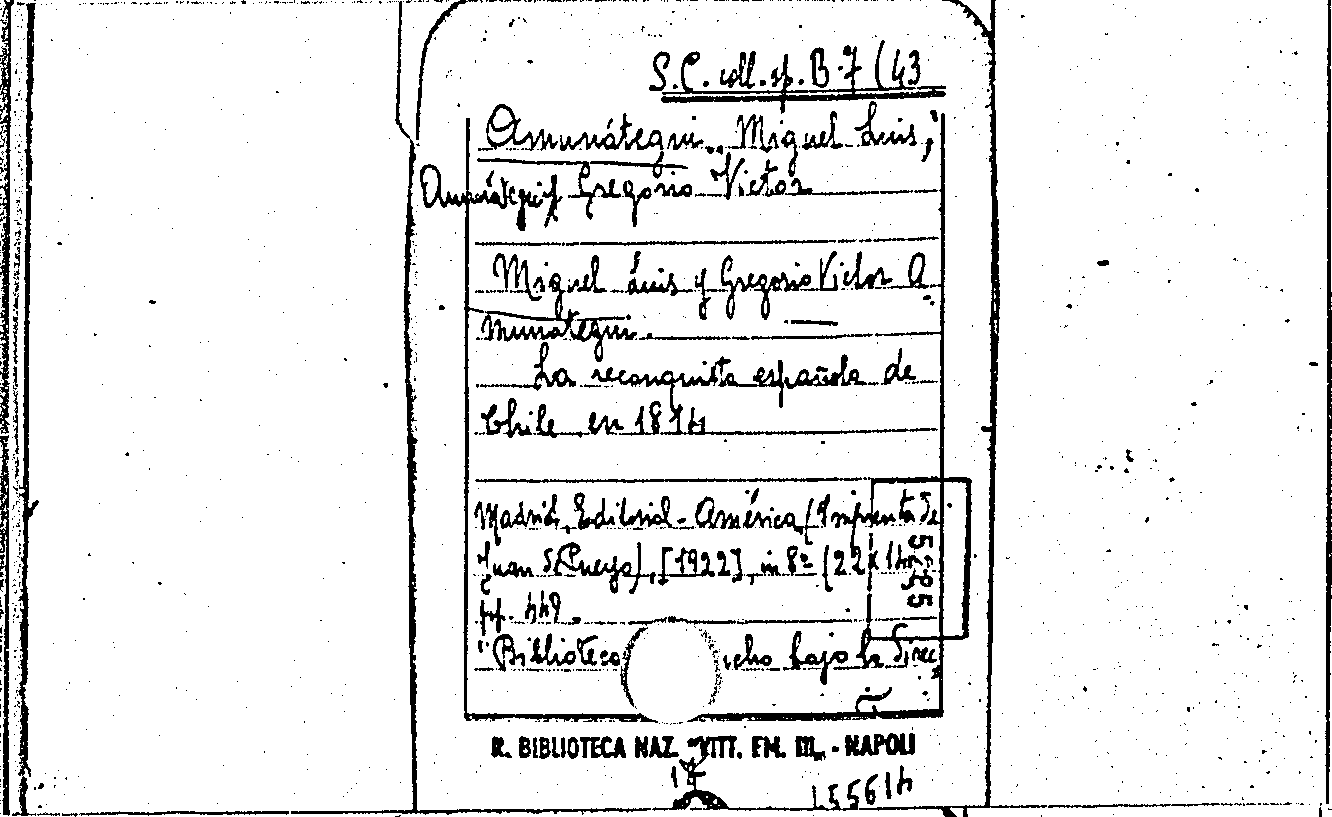 S.C. coll. sp. B 7 (43
Amunátegui, Miguel Luis,
Amunátegui Gregorio Victor
Miguel Luis y Gregorio Victor A
munátegui.
La reconquista española de
Chile en 1814
Madrid, Editorial-América (Imprenta de
Juan Pueyo), [1922], in 8º (22 x 14
pp. 449.
"Biblioteca cho bajo la direc
5525
R. BIBLIOTECA NAZ. "VITT. EM. III" - NAPOLI
155614